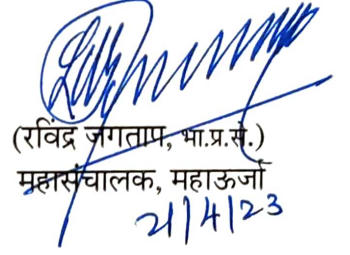 (रविंद्र जगताप, भा.प्र.से.)
महासंचालक, महाऊर्जा
21/4/23